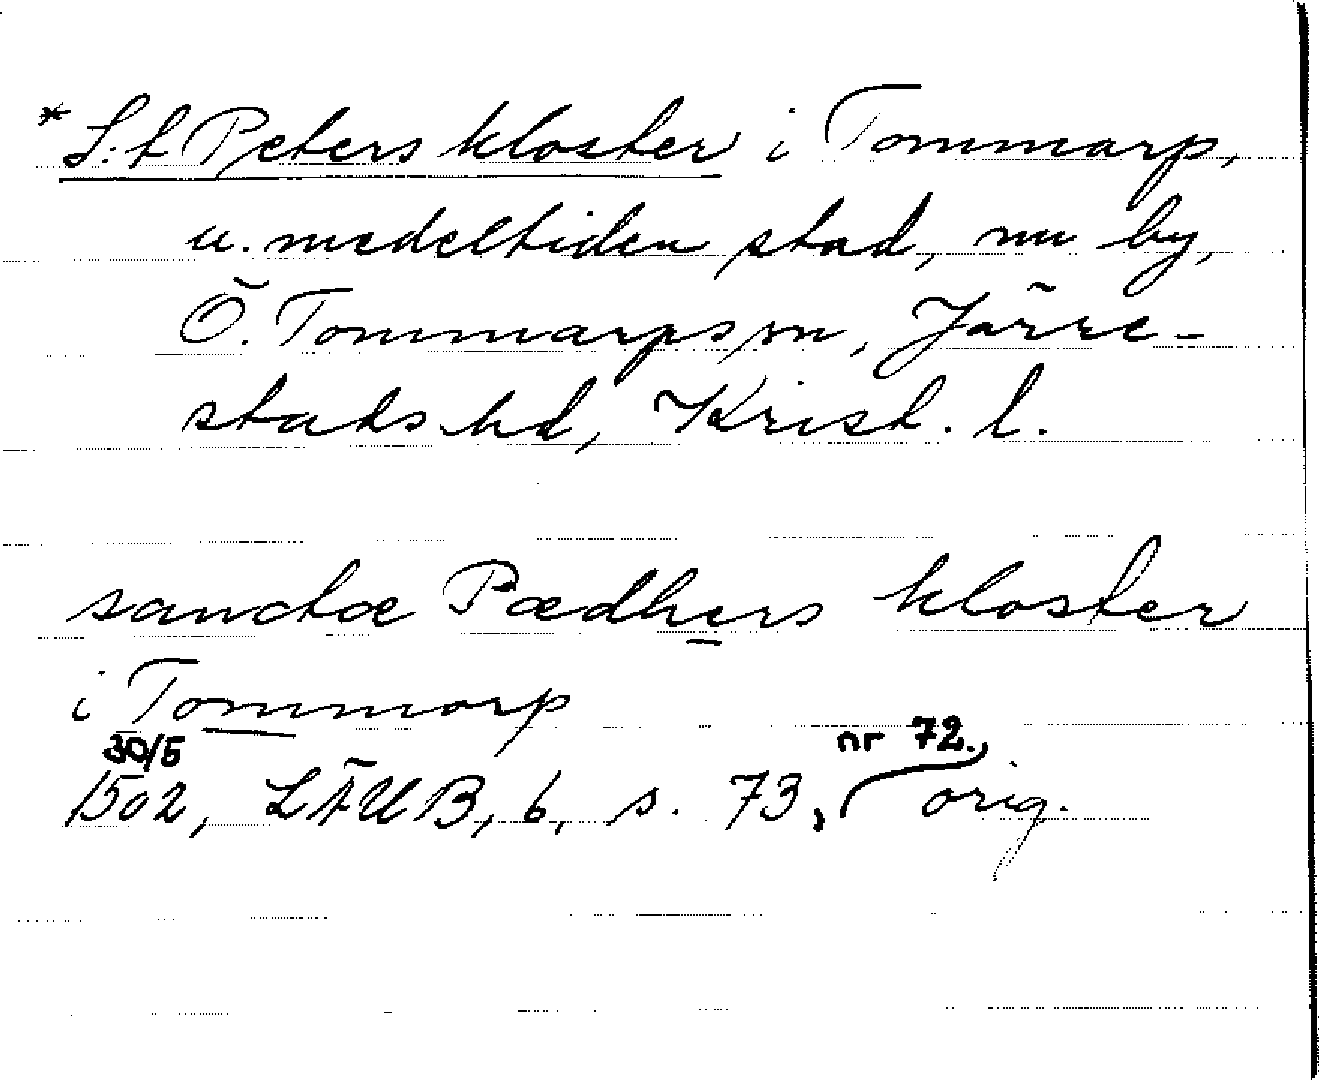 * S:t Peters kloster i Tommarp,
u. medeltiden stad, nu by,
Ö. Tommarps sn, Järre-
stads hd, Krist. l.
sanctæ Pædhers kloster
i Tommorp
30/5 nr 72.,
1502, LÄUB, 6, s. 73, orig.